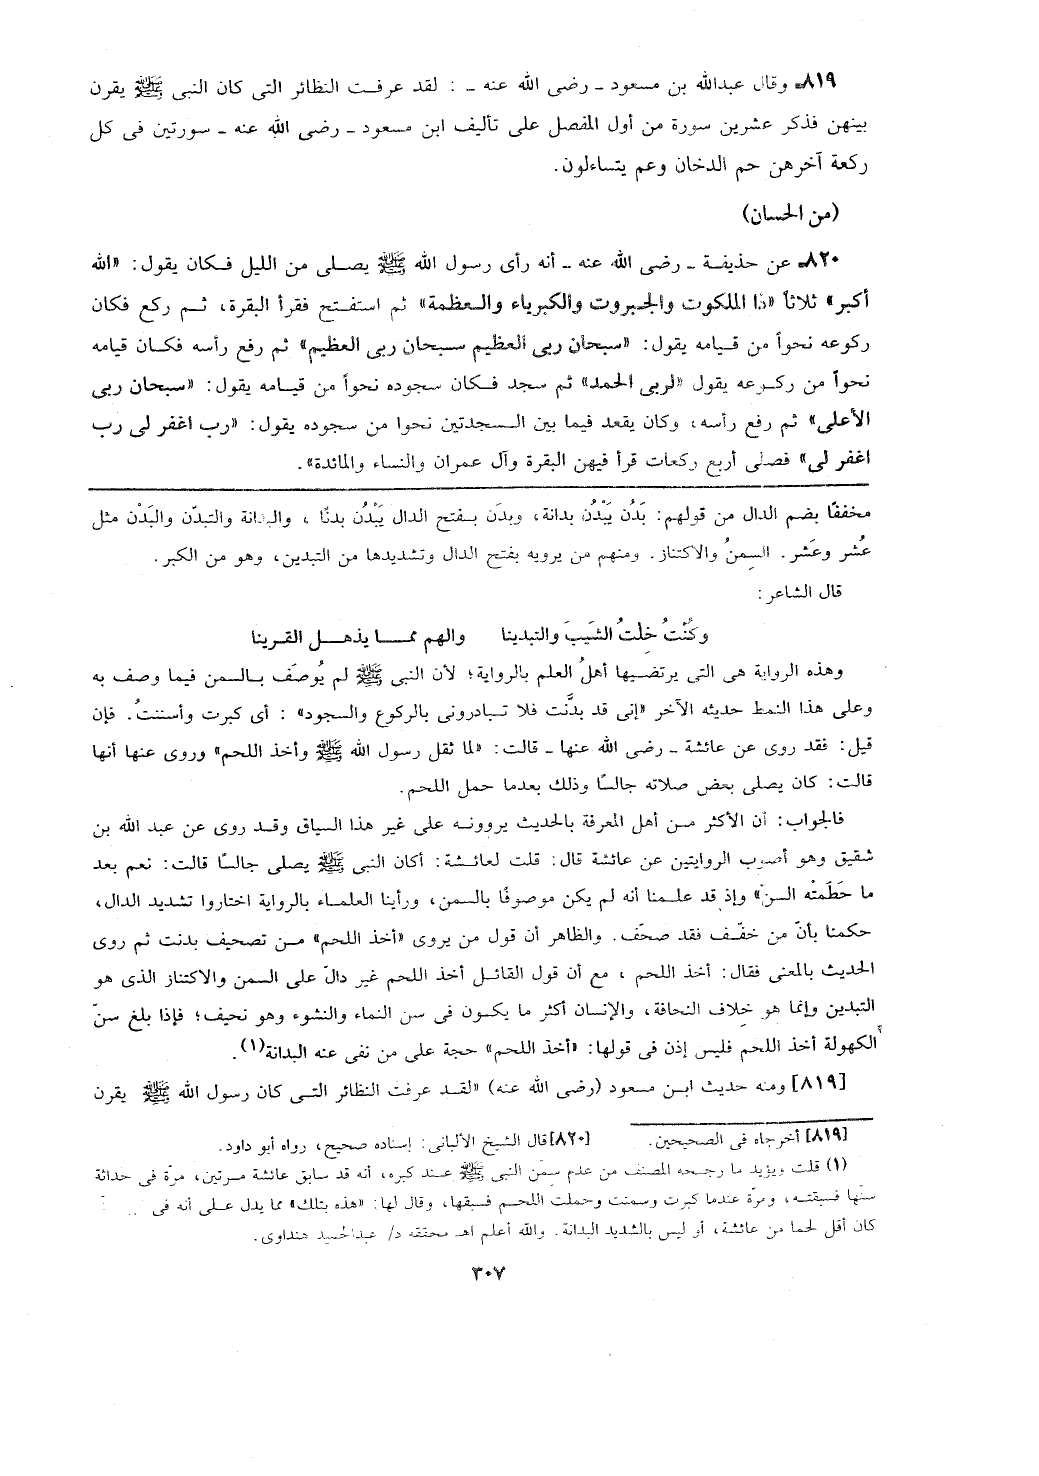 ٨١٩ـ وقال عبدالله بن مسعود ـ رضى الله عنه ـ : لقد عرفت النظائر التى كان النبى ﷺ يقرن
بينهن فذكر عشرين سورة من أول المفصل على تأليف ابن مسعود ـ رضى الله عنه ـ سورتين فى كل
ركعة آخرهن حم الدخان وعم يتساءلون.
(من الحسان)
٨٢٠ـ عن حذيفة ـ رضى الله عنه ـ أنه رأى رسول الله ﷺ يصلى من الليل فكان يقول: «الله
أكبر» ثلاثاً «ذا الملكوت والجبروت والكبرياء والعظمة» ثم استفتح فقرأ البقرة، ثم ركع فكان
ركوعه نحواً من قيامه يقول: «سبحان ربى العظيم سبحان ربى العظيم» ثم رفع رأسه فكان قيامه
نحواً من ركوعه يقول «لربى الحمد» ثم سجد فكان سجوده نحواً من قيامه يقول: «سبحان ربى
الأعلى» ثم رفع رأسه، وكان يقعد فيما بين السجدتين نحوا من سجوده يقول: «رب اغفر لى رب
اغفر لى» فصلى أربع ركعات قرأ فيهن البقرة وآل عمران والنساء والمائدة».
مخففًا بضم الدال من قولهم: بَدُن يَبْدُن بدانة، وبدَن بفتح الدال يَبْدُن بدنًا ، والبدانة والتبدّن والبَدْن مثل
عُشر وعَشر. السمنُ والاكتناز. ومنهم من يرويه بفتح الدال وتشديدها من التبدين، وهو من الكبر.
قال الشاعر:
وكُنْتُ خلْتُ الشَيبَ والتبدينا والهم مما يذهل القرينا
وهذه الرواية هى التى يرتضيها أهلُ العلم بالرواية؛ لأن النبى ﷺ لم يُوصَف بالسمن فيما وصف به
وعلى هذا النمط حديثه الآخر «إنى قد بدَّنت فلا تبادرونى بالركوع والسجود» : أى كبرت وأسننتُ. فإن
قيل: فقد روى عن عائشة ـ رضى الله عنها ـ قالت: «لما ثقل رسول الله ﷺ وأخذ اللحم» وروى عنها أنها
قالت: كان يصلى بعض صلاته جالسًا وذلك بعدما حمل اللحم.
فالجواب: أن الأكثر من أهل المعرفة بالحديث يروونه على غير هذا السياق وقد روى عن عبد الله بن
شقيق وهو أصوب الروايتين عن عائشة قال: قلت لعائشة: أكان النبى ﷺ يصلى جالسًا قالت: نعم بعد
ما حَطَمَتْه السنّ» وإذ قد علمنا أنه لم يكن موصوفًا بالسمن، ورأينا العلماء بالرواية اختاروا تشديد الدال،
حكمنا بأنّ من خفّف فقد صحّف. والظاهر أن قول من يروى «أخذ اللحم» من تصحيف بدنت ثم روى
الحديث بالمعنى فقال: أخذ اللحم ، مع أن قول القائل أخذ اللحم غير دالّ على السمن والاكتناز الذى هو
التبدين وإنما هو خلاف النحافة، والإنسان أكثر ما يكون فى سن النماء والنشوء وهو نحيف؛ فإذا بلغ سنّ
الكهولة أخذ اللحم فليس إذن فى قولها: «أخذ اللحم» حجة على من نفى عنه البدانة(١).
[٨١٩] ومنه حديث ابن مسعود (رضى الله عنه) «لقد عرفت النظائر التى كان رسول الله ﷺ يقرن
[٨١٩] أخرجاه فى الصحيحين. [٨٢٠] قال الشيخ الألبانى: إسناده صحيح، رواه أبو داود.
(١) قلت ويؤيد ما رجحه المصنف من عدم سمَن النبى ﷺ عند كبره، أنه قد سابق عائشة مرتين، مرّة فى حداثة
سنّها فسبقته، ومرّة عندما كبرت وسمنت وحملت اللحم فسبقها، وقال لها: «هذه بتلك» مما يدل على أنه فى
كان أقل لحما من عائشة، أو ليس بالشديد البدانة. والله أعلم اهـ محققه د/ عبدالحميد هنداوى.
٣٠٧